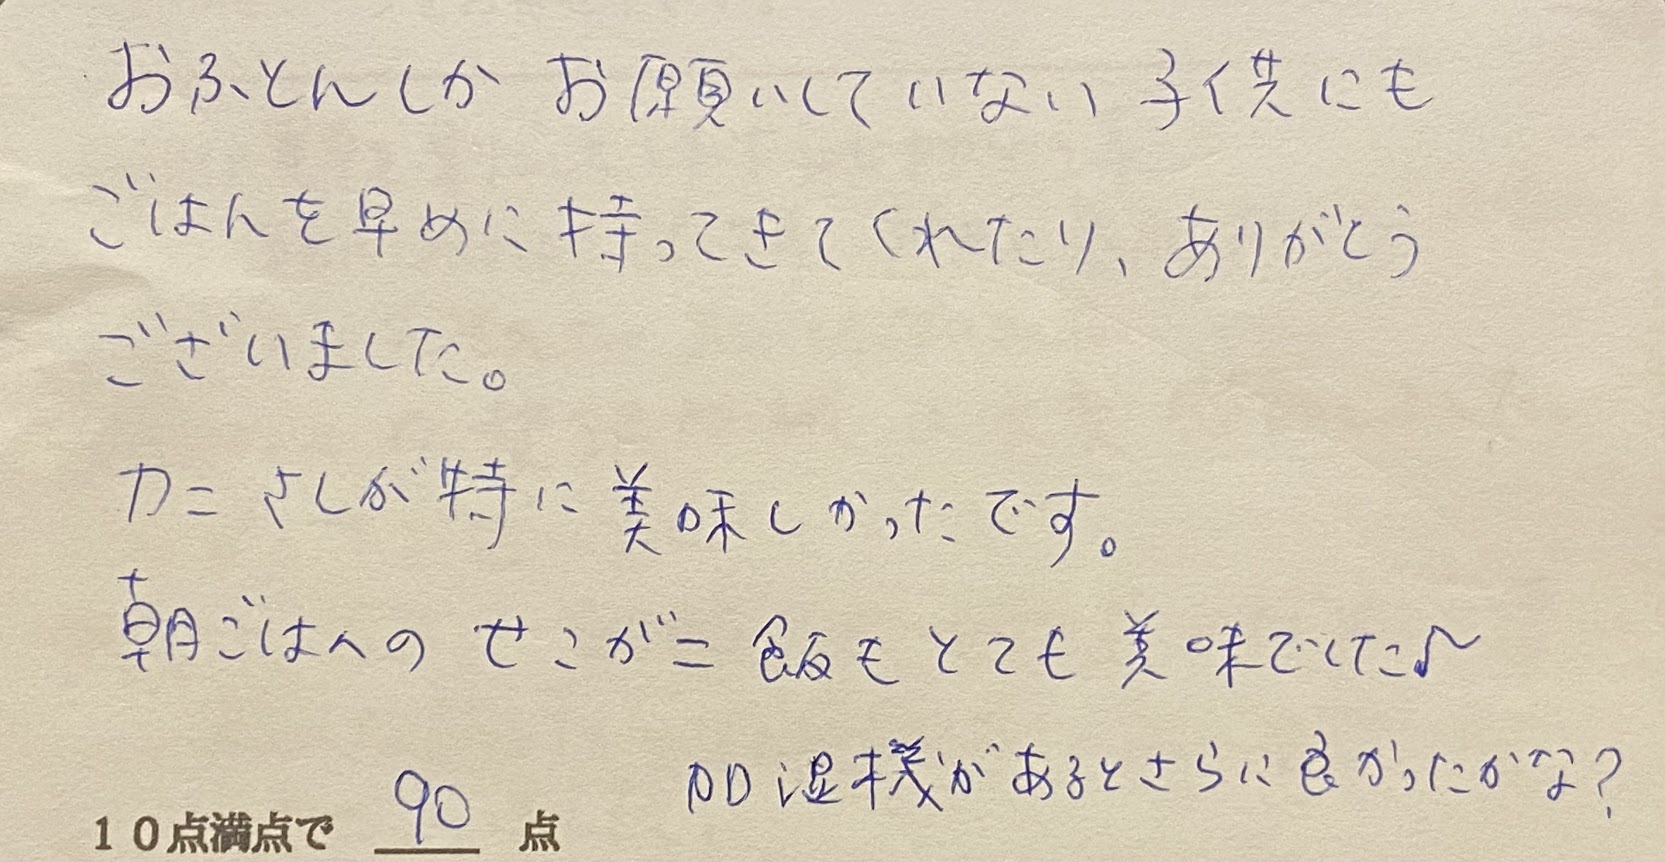 おふとんしか お願いしていない 子供にも
ごはんを早めに持ってきてくれたり、ありがとう
ございました。
カニさしが特に美味しかったです。
朝ごはんの せこがニ飯もとても美味でした♪
加湿機があるとさらに良かったかな?
10点満点で 90 点